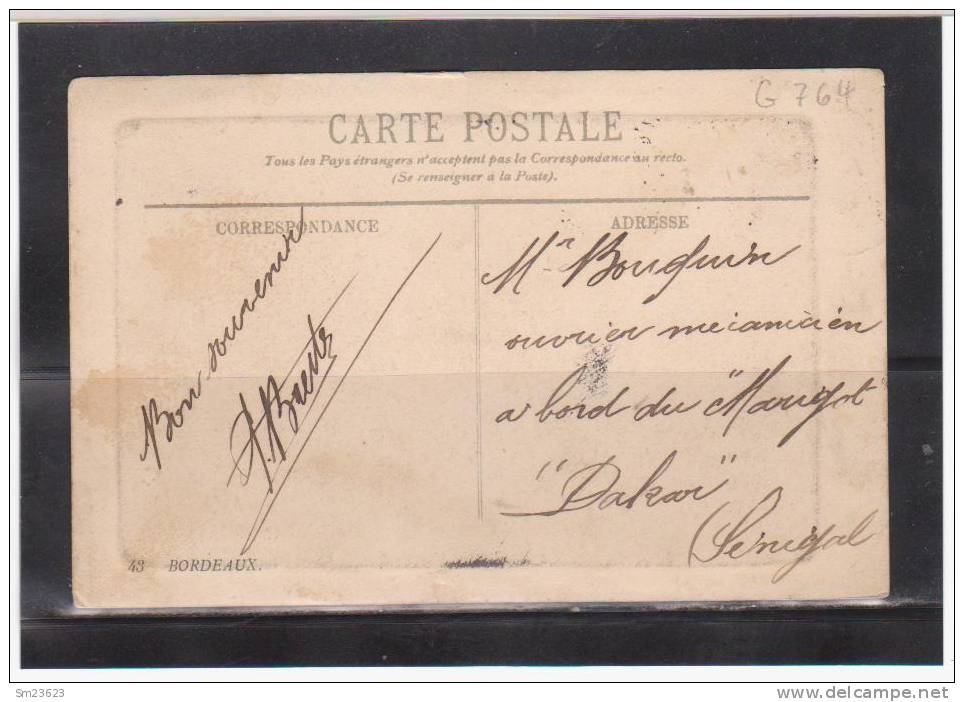 G 764
CARTE POSTALE
Tous les Pays étrangers n'acceptent pas la Correspondance au recto.
(Se renseigner à la Poste).
CORRESPONDANCE
Bon souvenir
ADRESSE
Mr
ouvrier
a bord du "Marigot
"Dakar"
(Sénégal
43 BORDEAUX.
Sm23623
www.delcampe.net